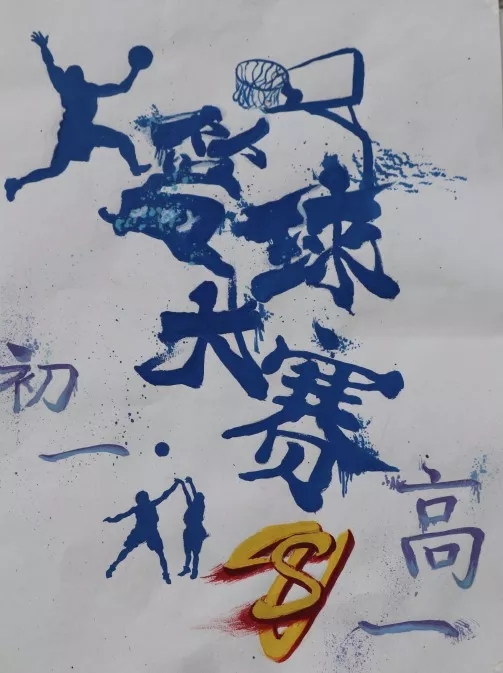 篮球
大赛
初一
VS
高一